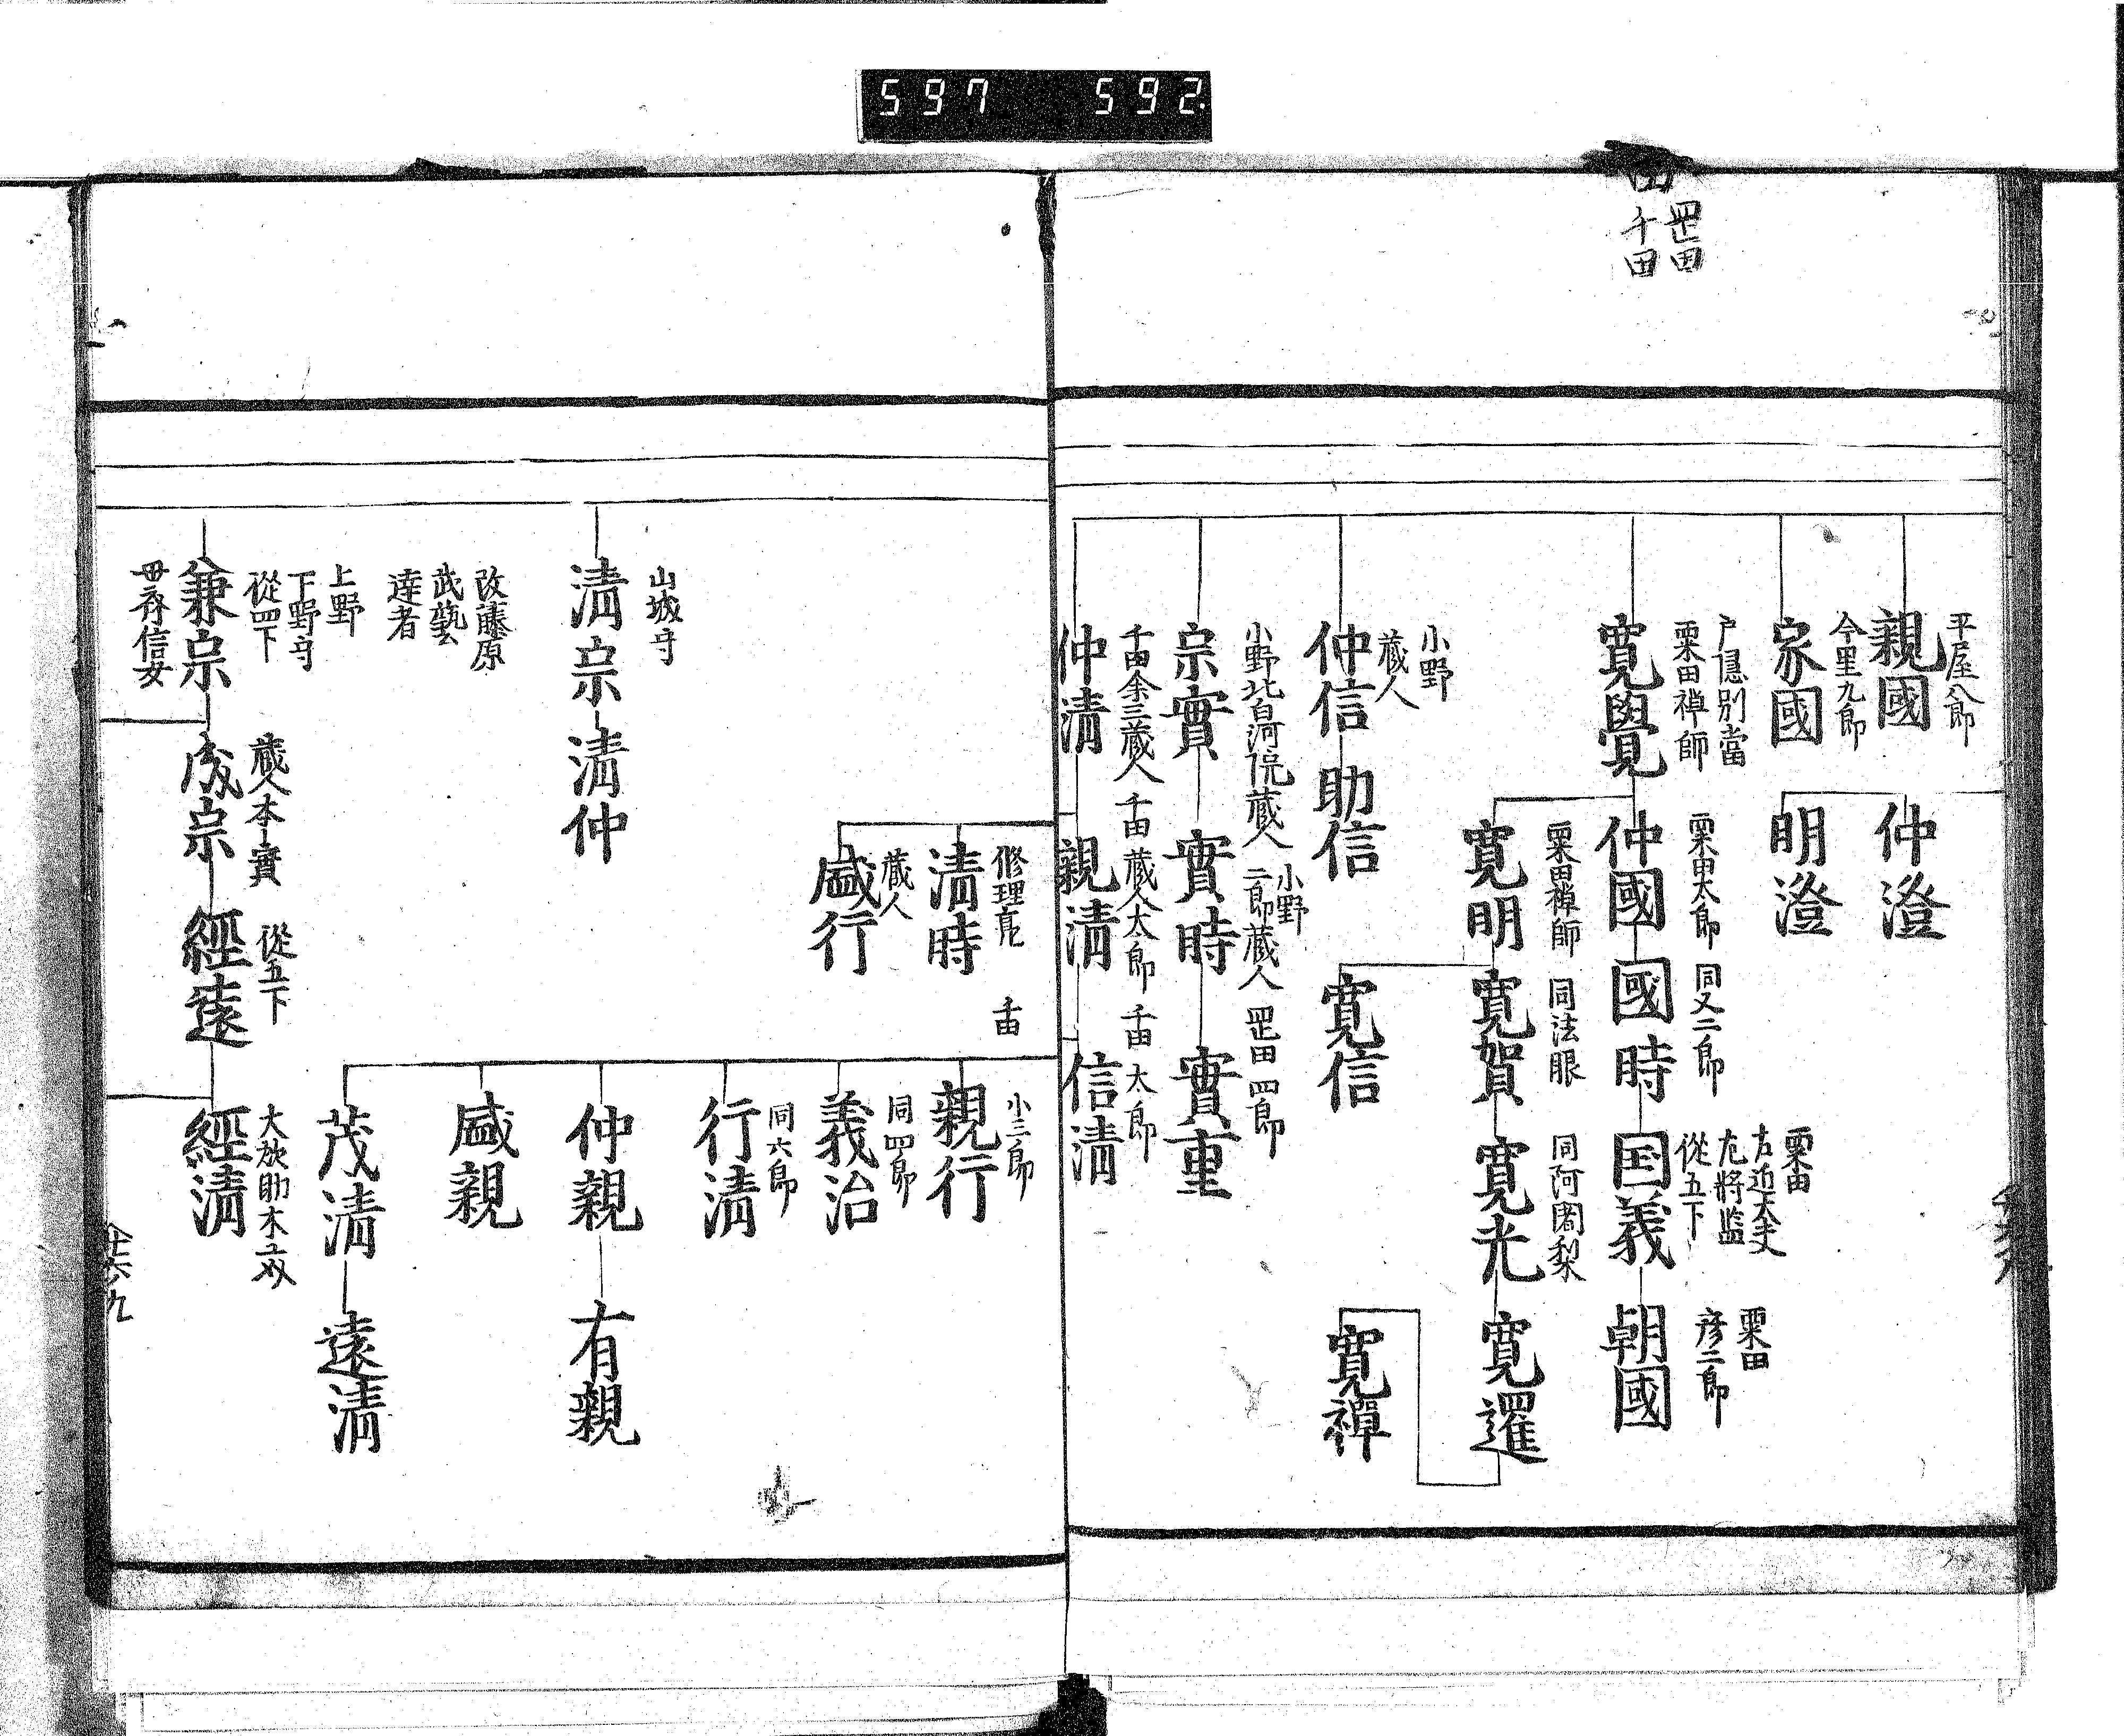 597 592
罡田
千田
平屋八郎
親國
仲澄
今里九郎
家國
明澄
戸隠別當
粟田禅師
寛覺
粟田太郎
仲國
同又二郎
國時
粟田
右近大夫
左將監
從五下
国義
粟田
彦二郎
朝國
粟田禅師
寛明
同法眼
寛賀
同阿闍梨
寛光
寛邏
寛信
寛禪
小野
蔵人
仲信
助信
小野北白河院蔵人
宗實
小野
二郎蔵人
實時
罡田四郎
實重
千田余三蔵人
仲清
千田蔵人太郎
親清
千田太郎
信清
修理亮
清時
蔵人
盛行
千田
小三郎
親行
同四郎
義治
同六郎
行清
仲親
有親
盛親
茂清
遠清
山城守
清宗
清仲
改藤原
武藝
達者
上野
下野守
從四下
兼宗
母存信女
蔵人本實
成宗
從五下
經遠
經清